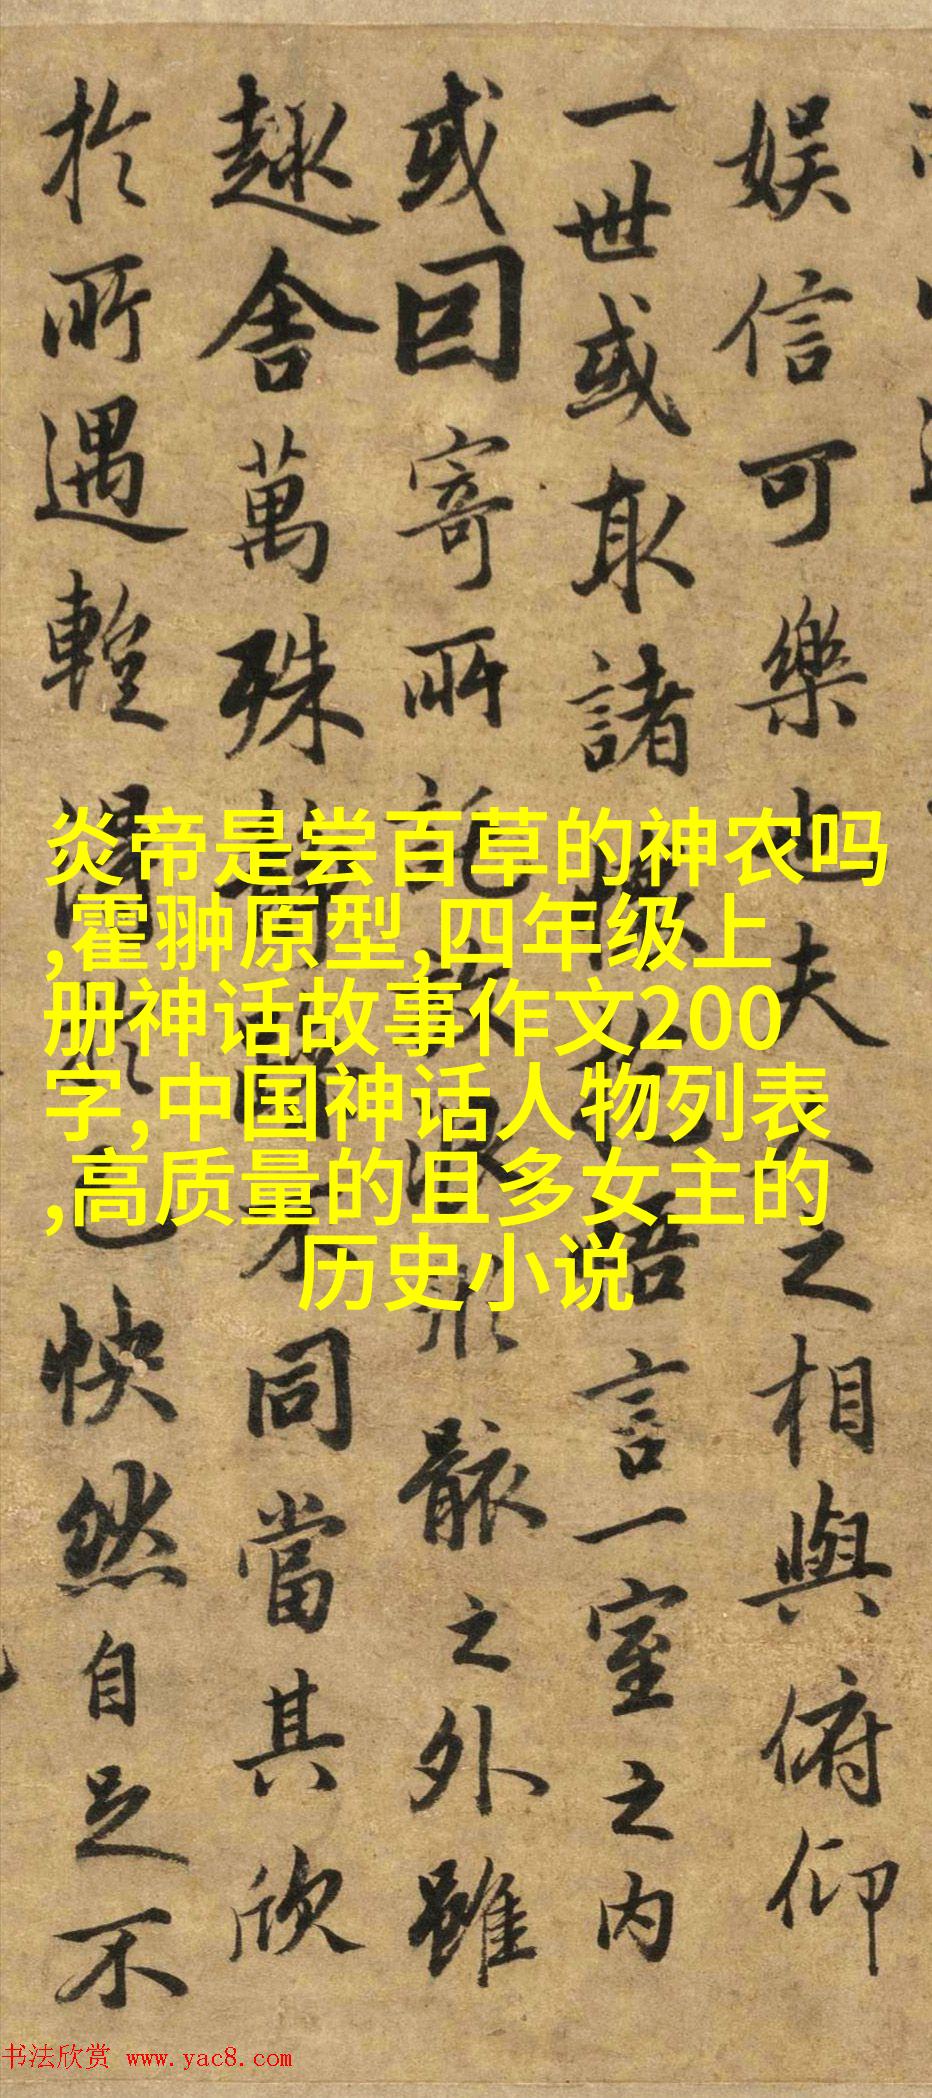 娛信可樂也夫人之相與俯仰
一世或取諸懷抱悟言一室之内
或因寄所託放浪形骸之外雖
趣舍萬殊静躁不同當其欣
於所遇暫得於己快然自足不
炎帝是尝百草的神农吗
,霍翀原型,四年级上
册神话故事作文200
字,中国神话人物列表
,高质量的且多女主的
历史小说
书法欣赏 www.yac8.com